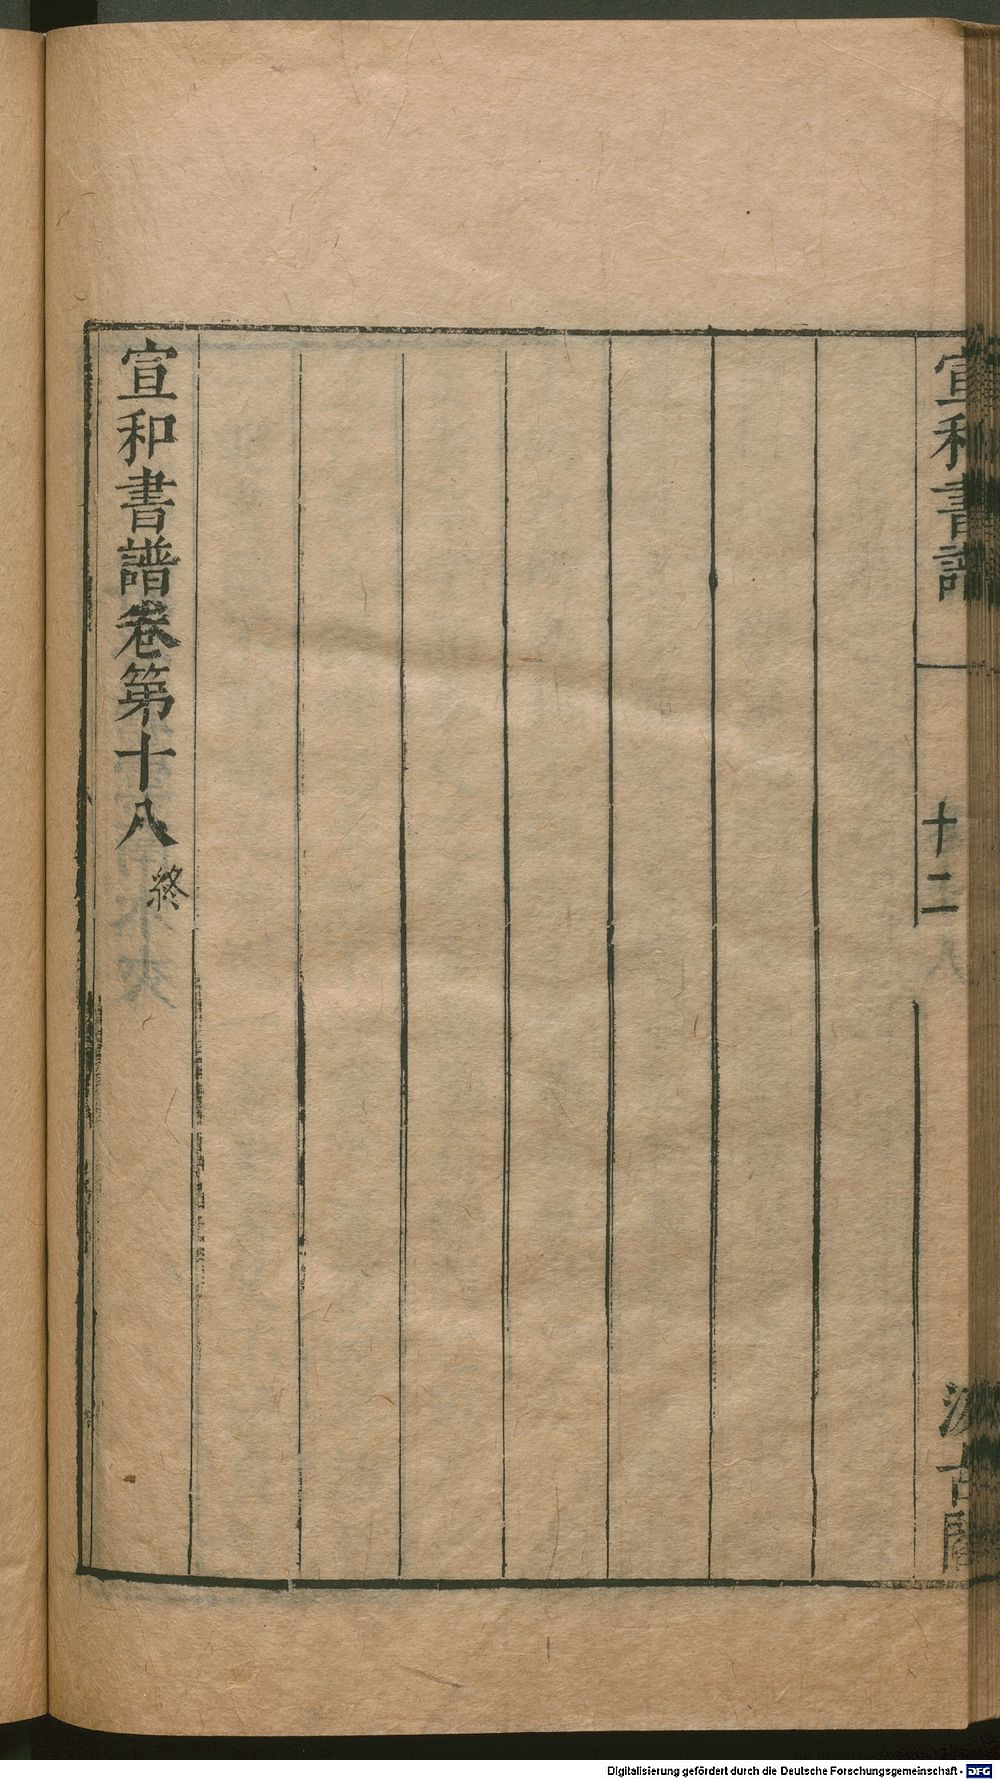 宣和書譜
十二
汲古閣
宣和書譜卷第十八
終
Digitalisierung gefördert durch die Deutsche Forschungsgemeinschaft - DFG